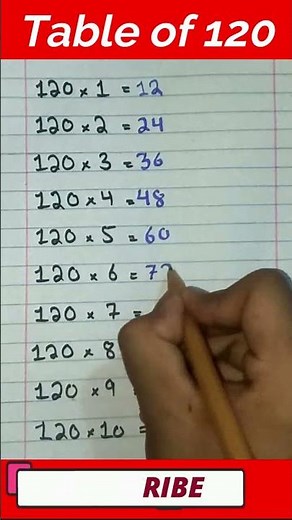 Table of 120
120 × 1 = 12
120 × 2 = 24
120 × 3 = 36
120 × 4 = 48
120 × 5 = 60
120 × 6 = 72
120 × 7 =
120 × 8
120 × 9
120 × 10 =
RIBE